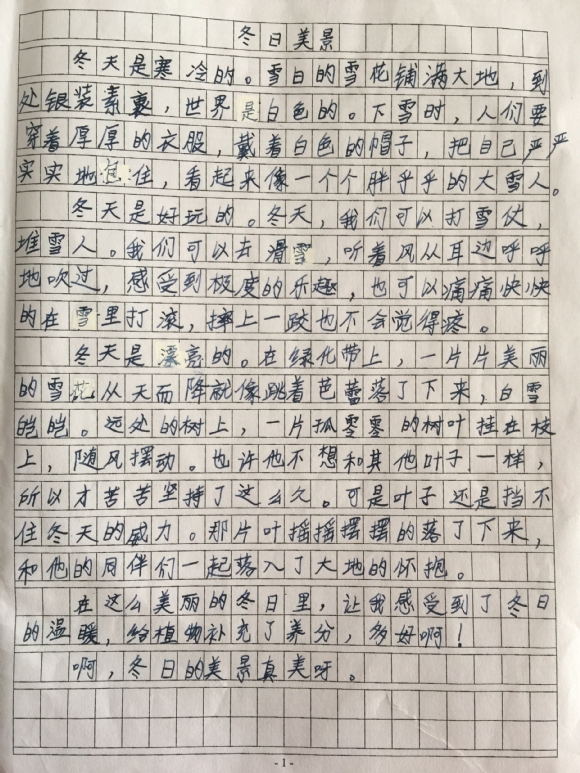 冬日美景
冬天是寒冷的。雪白的雪花铺满大地，到
处银装素裹，世界是白色的。下雪时，人们要
穿着厚厚的衣服，戴着白色的帽子，把自己严严
实实地包住，看起来像一个个胖乎乎的大雪人。
冬天是好玩的。冬天，我们可以打雪仗，
堆雪人。我们可以去滑雪，听着风从耳边呼呼
地吹过，感受到极度的乐趣，也可以痛痛快快
的在雪里打滚，摔上一跤也不会觉得疼。
冬天是漂亮的。在绿化带上，一片片美丽
的雪花从天而降就像跳着芭蕾落了下来，白雪
皑皑。远处的树上，一片孤零零的树叶挂在枝
上，随风摆动。也许他不想和其他叶子一样，
所以才苦苦坚持了这么久。可是叶子还是挡不
住冬天的威力。那片叶摇摇摆摆的落了下来，
和他的同伴们一起落入了大地的怀抱。
在这么美丽的冬日里，让我感受到了冬日
的温暖，给植物补充了养分，多好啊！
啊，冬日的美景真美呀。
- 1 -